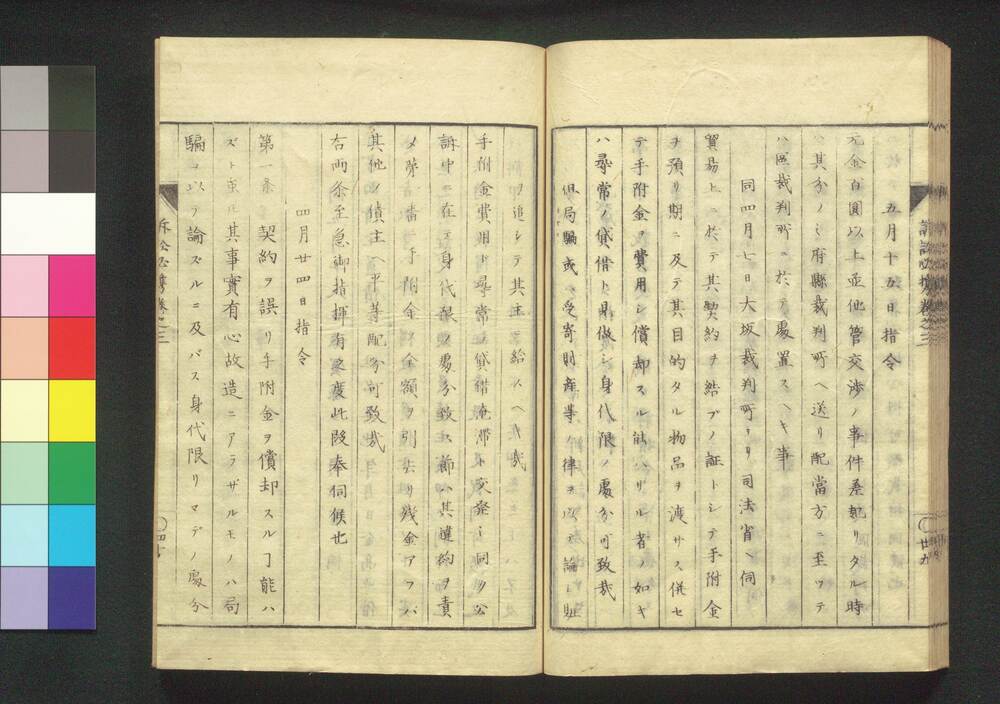 五月十五日指令
元金百圓以上並他管交渉ノ事件差起リタル時
ハ其分ノミ府縣裁判所ヘ送リ配當方ニ至ツテ
ハ區裁判所ニ於テ處置スヘキ事
同四月七日大坂裁判所ヨリ司法省ヘ伺
貿易上ニ於テ其契約ヲ結ブノ証トシテ手附金
ヲ預リ期ニ及テ其目的タル物品ヲ渡サス併セ
テ手附金ヲ費用シ償却スル能ハザル者ノ如キ
ハ尋常ノ貸借ト見做シ身代限ノ處分可致哉
但局騙或ハ受寄財産等ノ律ヲ以テ論シ賍
ヲ追シテ其主ニ給スヘキ哉
手附金費用ト尋常ノ貸借淹滞ト交發シ同ク公
訴中ニ在テ身代限ノ處分致ス節ハ其違約ヲ責
メ第一番ニ手附金ノ全額ヲ引去リ殘金アラバ
其他ノ債主ヘ平等配分可致哉
右両条至急御指揮有之度此段奉伺候也
四月廿四日指令
第一条 契約ヲ誤リ手附金ヲ償却スル丁能ハ
ズト雖モ其事實有心故造ニアラザルモノハ局
騙ヲ以テ論ズルニ及バス身代限リマデノ處分